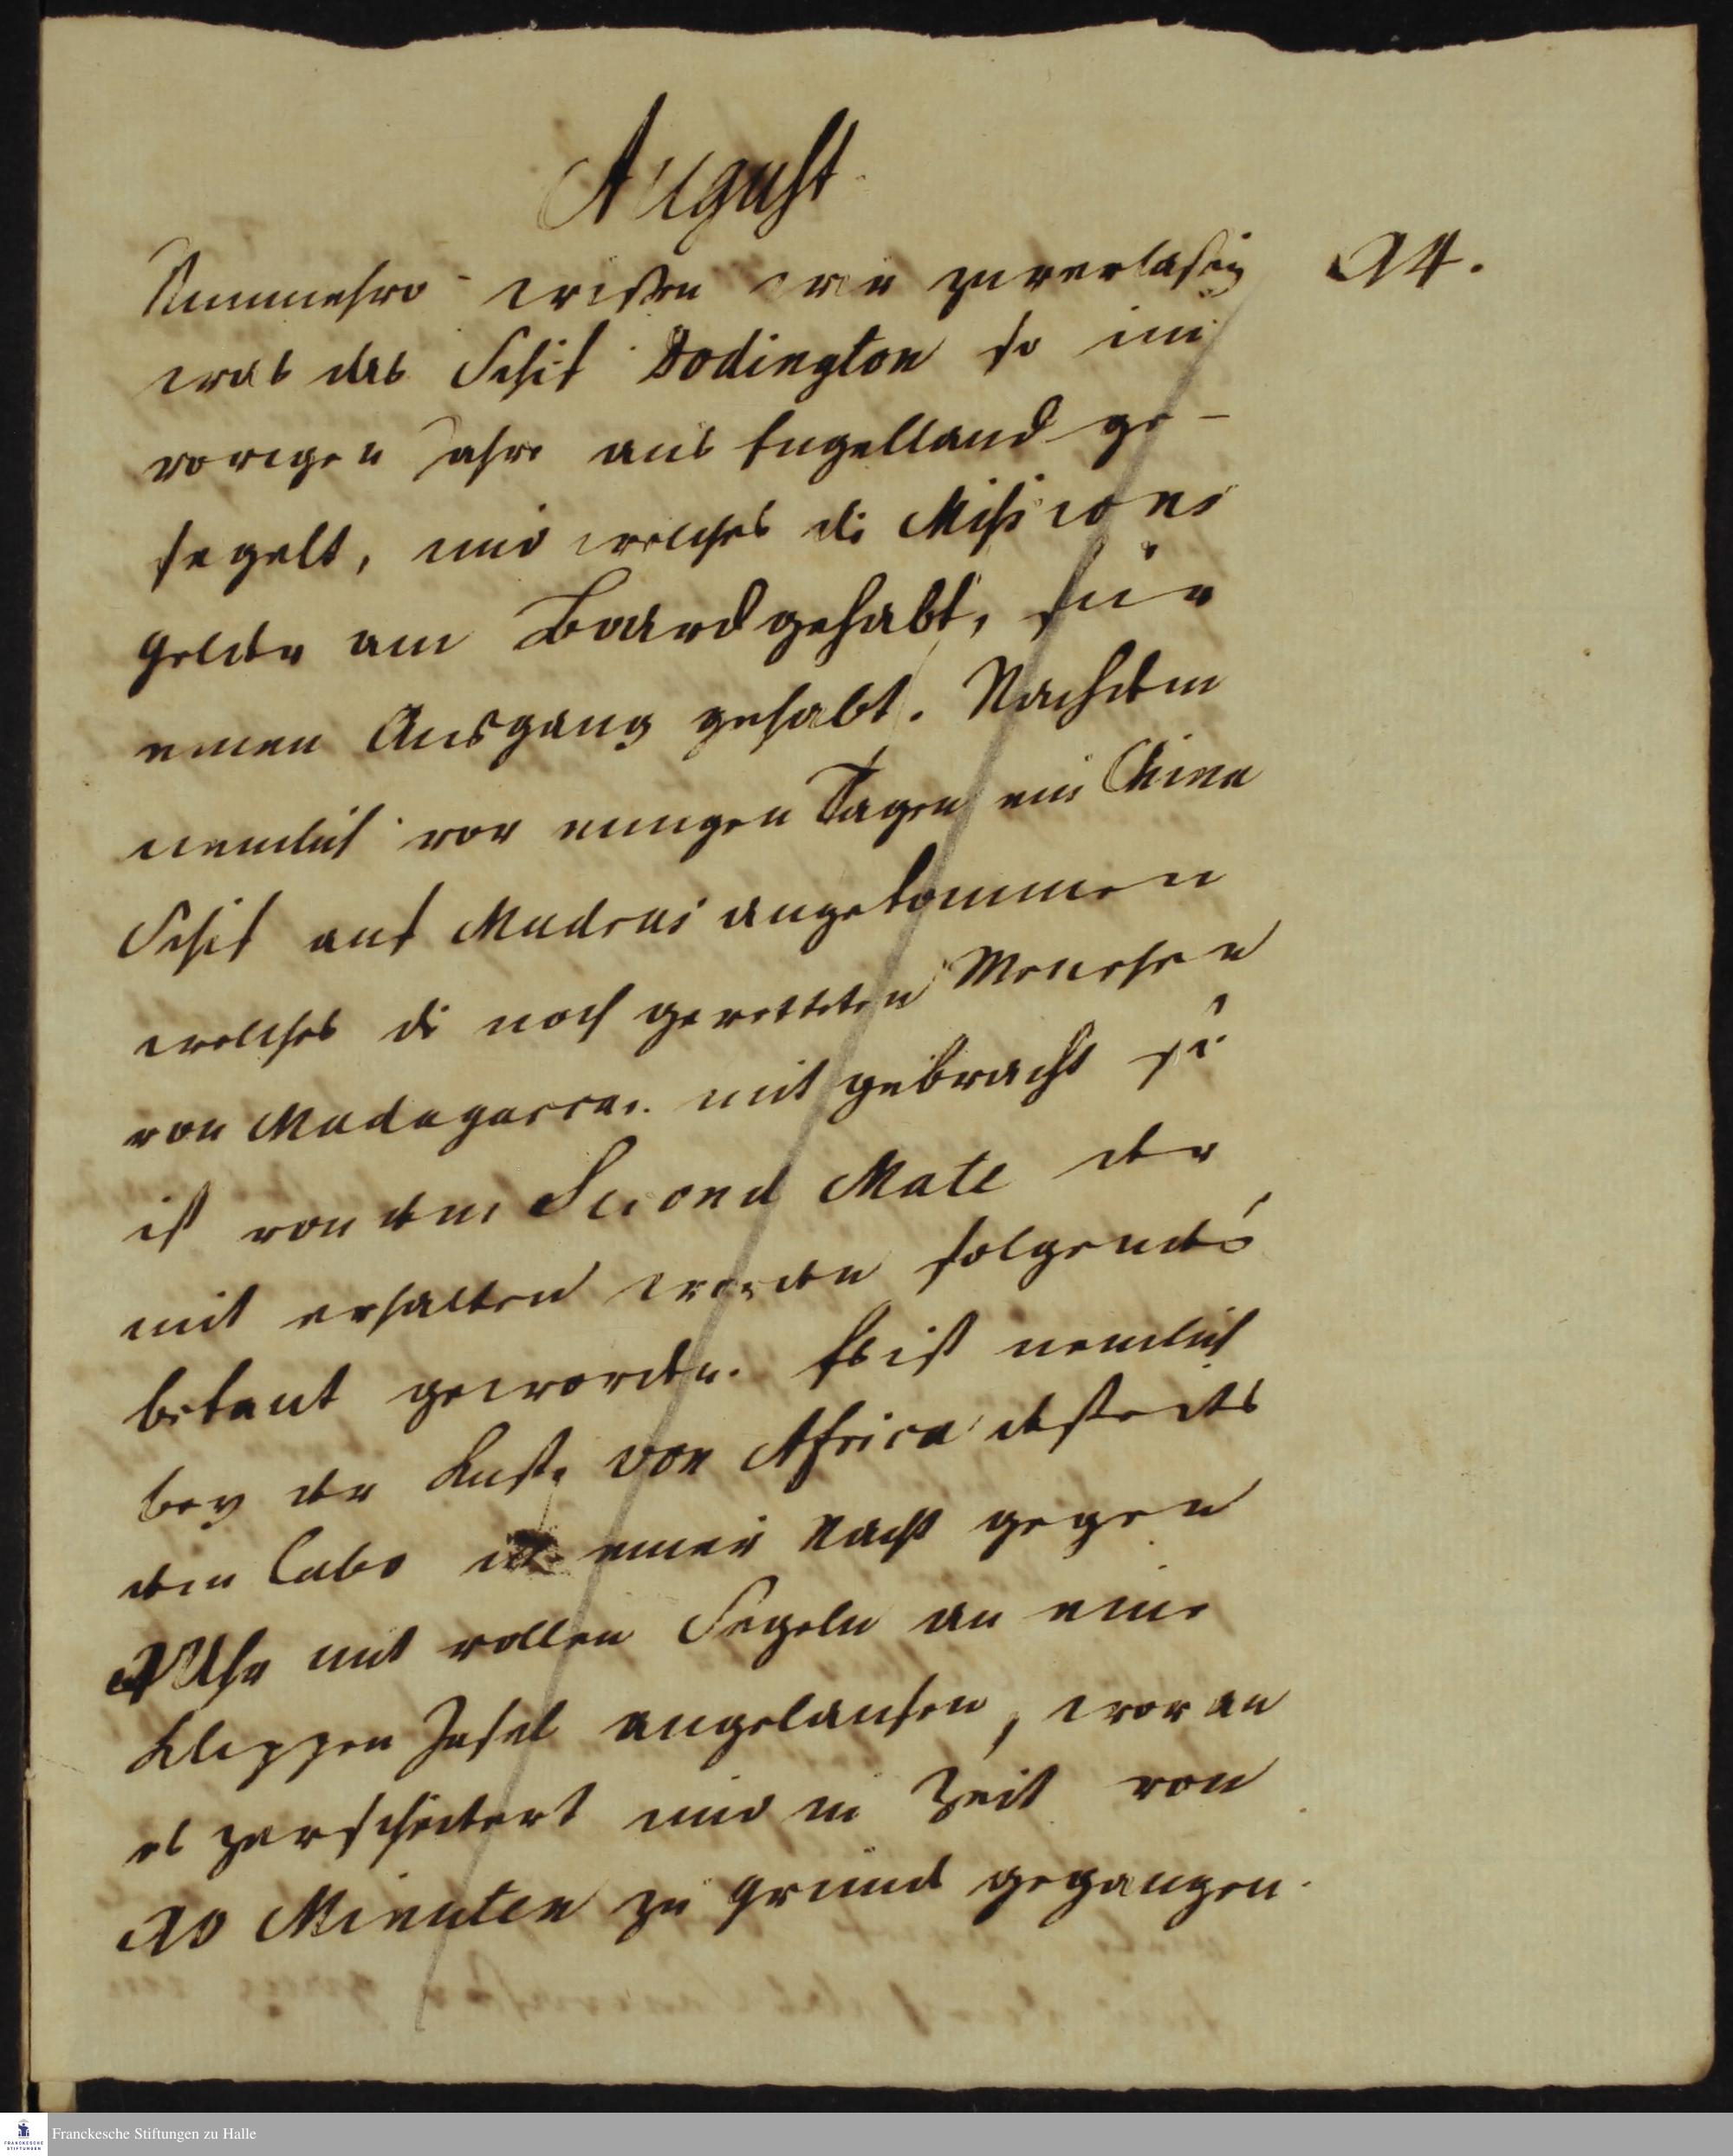 August
Nunmehro wißen wir zuverlaßig
24.
was das Schif Dodington so im
vorigen Jahre aus Engelland ge-
segelt, und welches die Missions
Gelder am Boord gehabt, für
einen Ausgang gehabt. Nachdem
nemlich vor einigen Tagen ein China
Schif auf Madras angekommen
welches die noch geretteten Menschen
von Madagascar mit gebracht so
ist von dem Second Mate der
mit erhalten worden folgendes
bekant geworden. Es ist nemlich
bey der Kuste von Africa disseits
dem Cabo in einer Nacht gegen
Uhr mit vollen Segeln an eine
Klippen Insel angelaufen, woran
es zerscheitert und in Zeit von
20 Minuten zu Grund gegangen.
Franckesche Stiftungen zu Halle
FRANCKESCHE
STIFTUNGEN